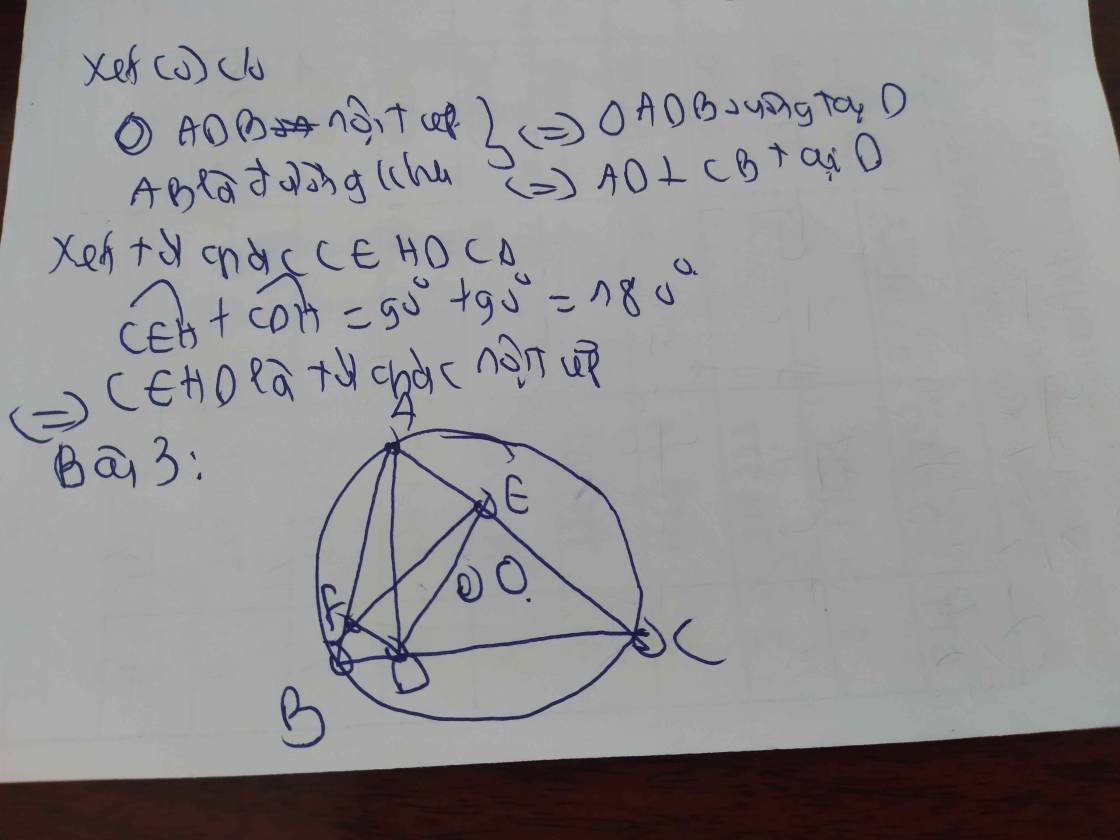 Xét (O) có
△ ADB nội tiếp } (=) △ ADB vuông tại D
AB là đường kính (=) AD ⊥ CB tại D
Xét tứ giác CEHD có
CEH + CDH = 90° + 90° = 180°
(=) CEHD là tứ giác nội tiếp
Bài 3:
A
E
O
F
C
D
B